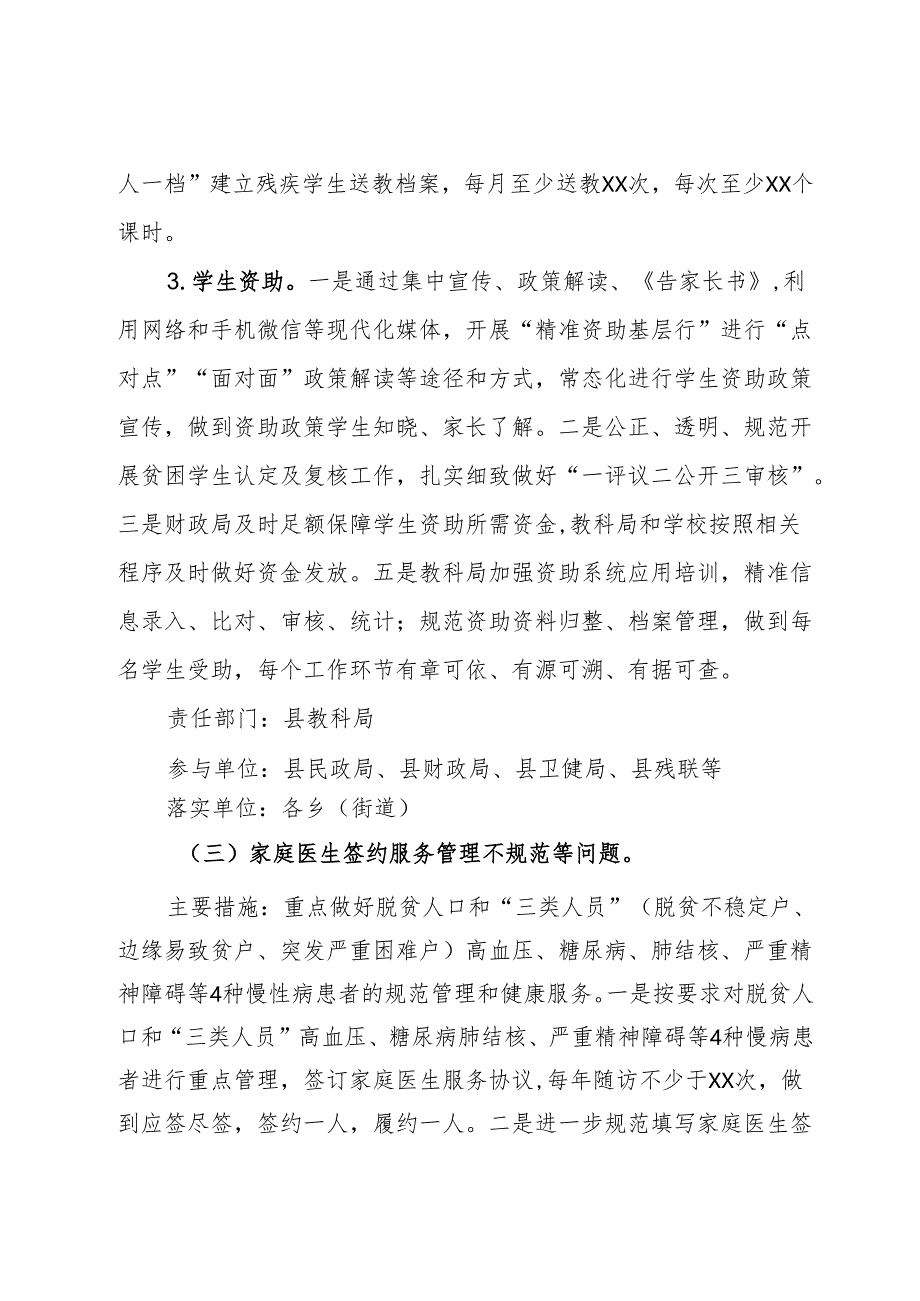 人一档”建立残疾学生送教档案，每月至少送教XX次，每次至少XX个
课时。
3.学生资助。一是通过集中宣传、政策解读、《告家长书》,利
用网络和手机微信等现代化媒体，开展“精准资助基层行”进行“点
对点”“面对面”政策解读等途径和方式，常态化进行学生资助政策
宣传，做到资助政策学生知晓、家长了解。二是公正、透明、规范开
展贫困学生认定及复核工作，扎实细致做好“一评议二公开三审核”。
三是财政局及时足额保障学生资助所需资金,教科局和学校按照相关
程序及时做好资金发放。五是教科局加强资助系统应用培训，精准信
息录入、比对、审核、统计；规范资助资料归整、档案管理，做到每
名学生受助，每个工作环节有章可依、有源可溯、有据可查。
责任部门：县教科局
参与单位：县民政局、县财政局、县卫健局、县残联等
落实单位：各乡（街道）
（三）家庭医生签约服务管理不规范等问题。
主要措施：重点做好脱贫人口和“三类人员”（脱贫不稳定户、
边缘易致贫户、突发严重困难户）高血压、糖尿病、肺结核、严重精
神障碍等4种慢性病患者的规范管理和健康服务。一是按要求对脱贫人
口和“三类人员”高血压、糖尿病肺结核、严重精神障碍等4种慢病患
者进行重点管理，签订家庭医生服务协议,每年随访不少于XX次，做
到应签尽签，签约一人，履约一人。二是进一步规范填写家庭医生签